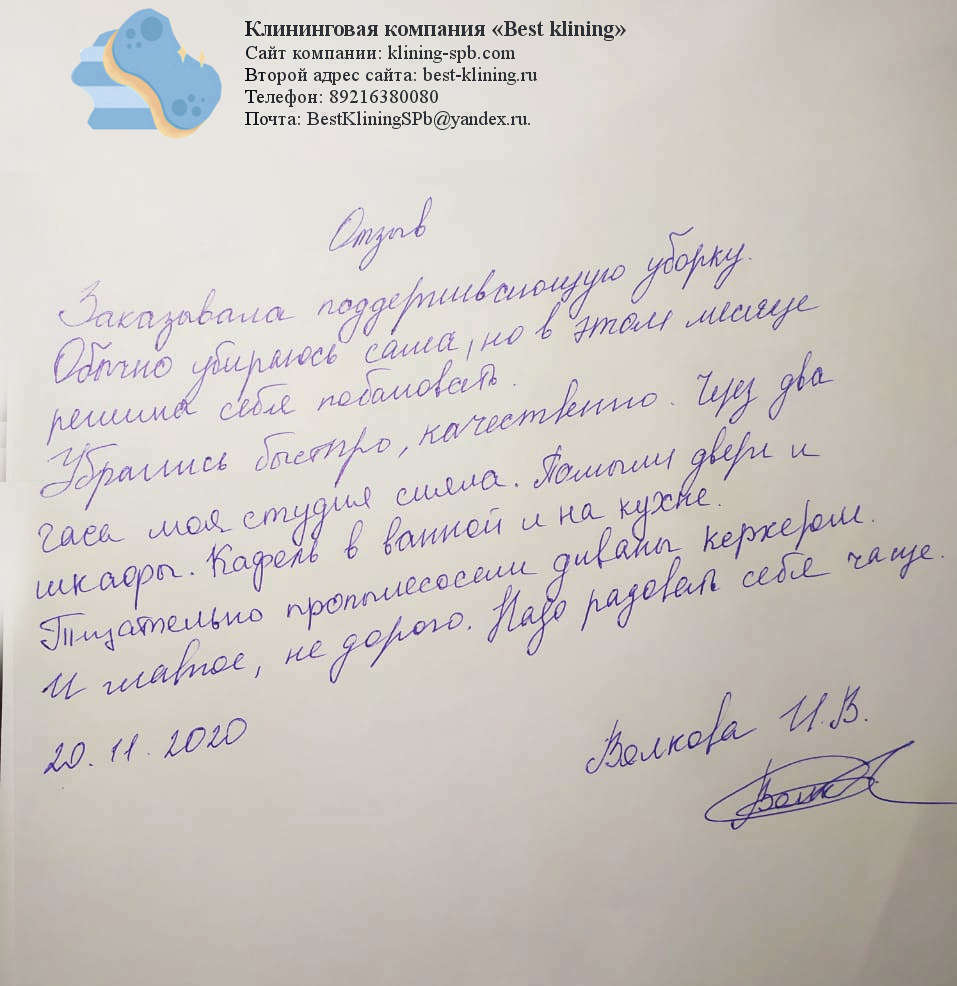 Клининговая компания «Best klining»
Сайт компании: klining-spb.com
Второй адрес сайта: best-klining.ru
Телефон: 89216380080
Почта: BestKliningSPb@yandex.ru.
Отзыв
Заказывала поддерживающую уборку.
Обычно убираюсь сама, но в этом месяце
решила себя побаловать.
Убрались быстро, качественно. Через два
часа моя студия сияла. Помыли двери и
шкафы. Кафель в ванной и на кухне.
Тщательно пропылесосели диваны керхером.
И главное, не дорого. Надо радовать себя чаще.
20.11.2020
Волкова И.В.